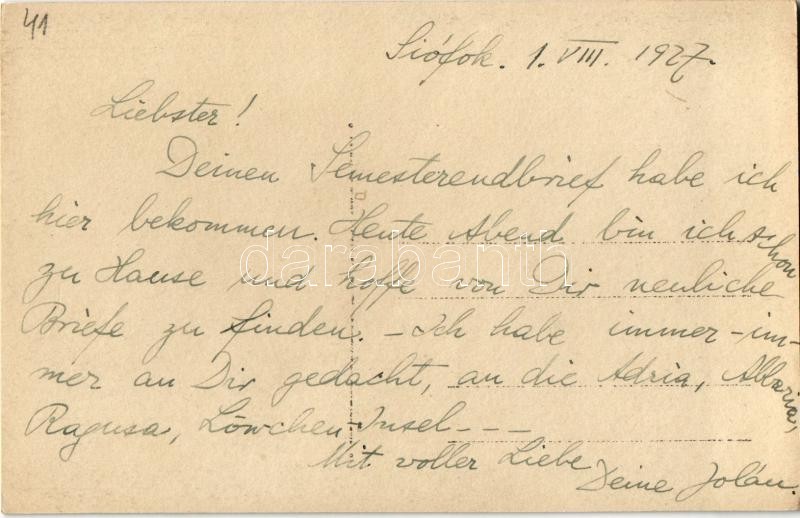 41
Siófok. 1. VIII. 1927.
Liebster!
Deinen Semesterendbrief habe ich
hier bekommen. Heute Abend bin ich schon
zu Hause und hoffe von Dir neuliche
Briefe zu finden. – Ich habe immer-im-
mer an Dir gedacht, an die Adria,
Ragusa, Löwchen-Insel - - -
Mit voller Liebe
Deine Jolán.
darabanth